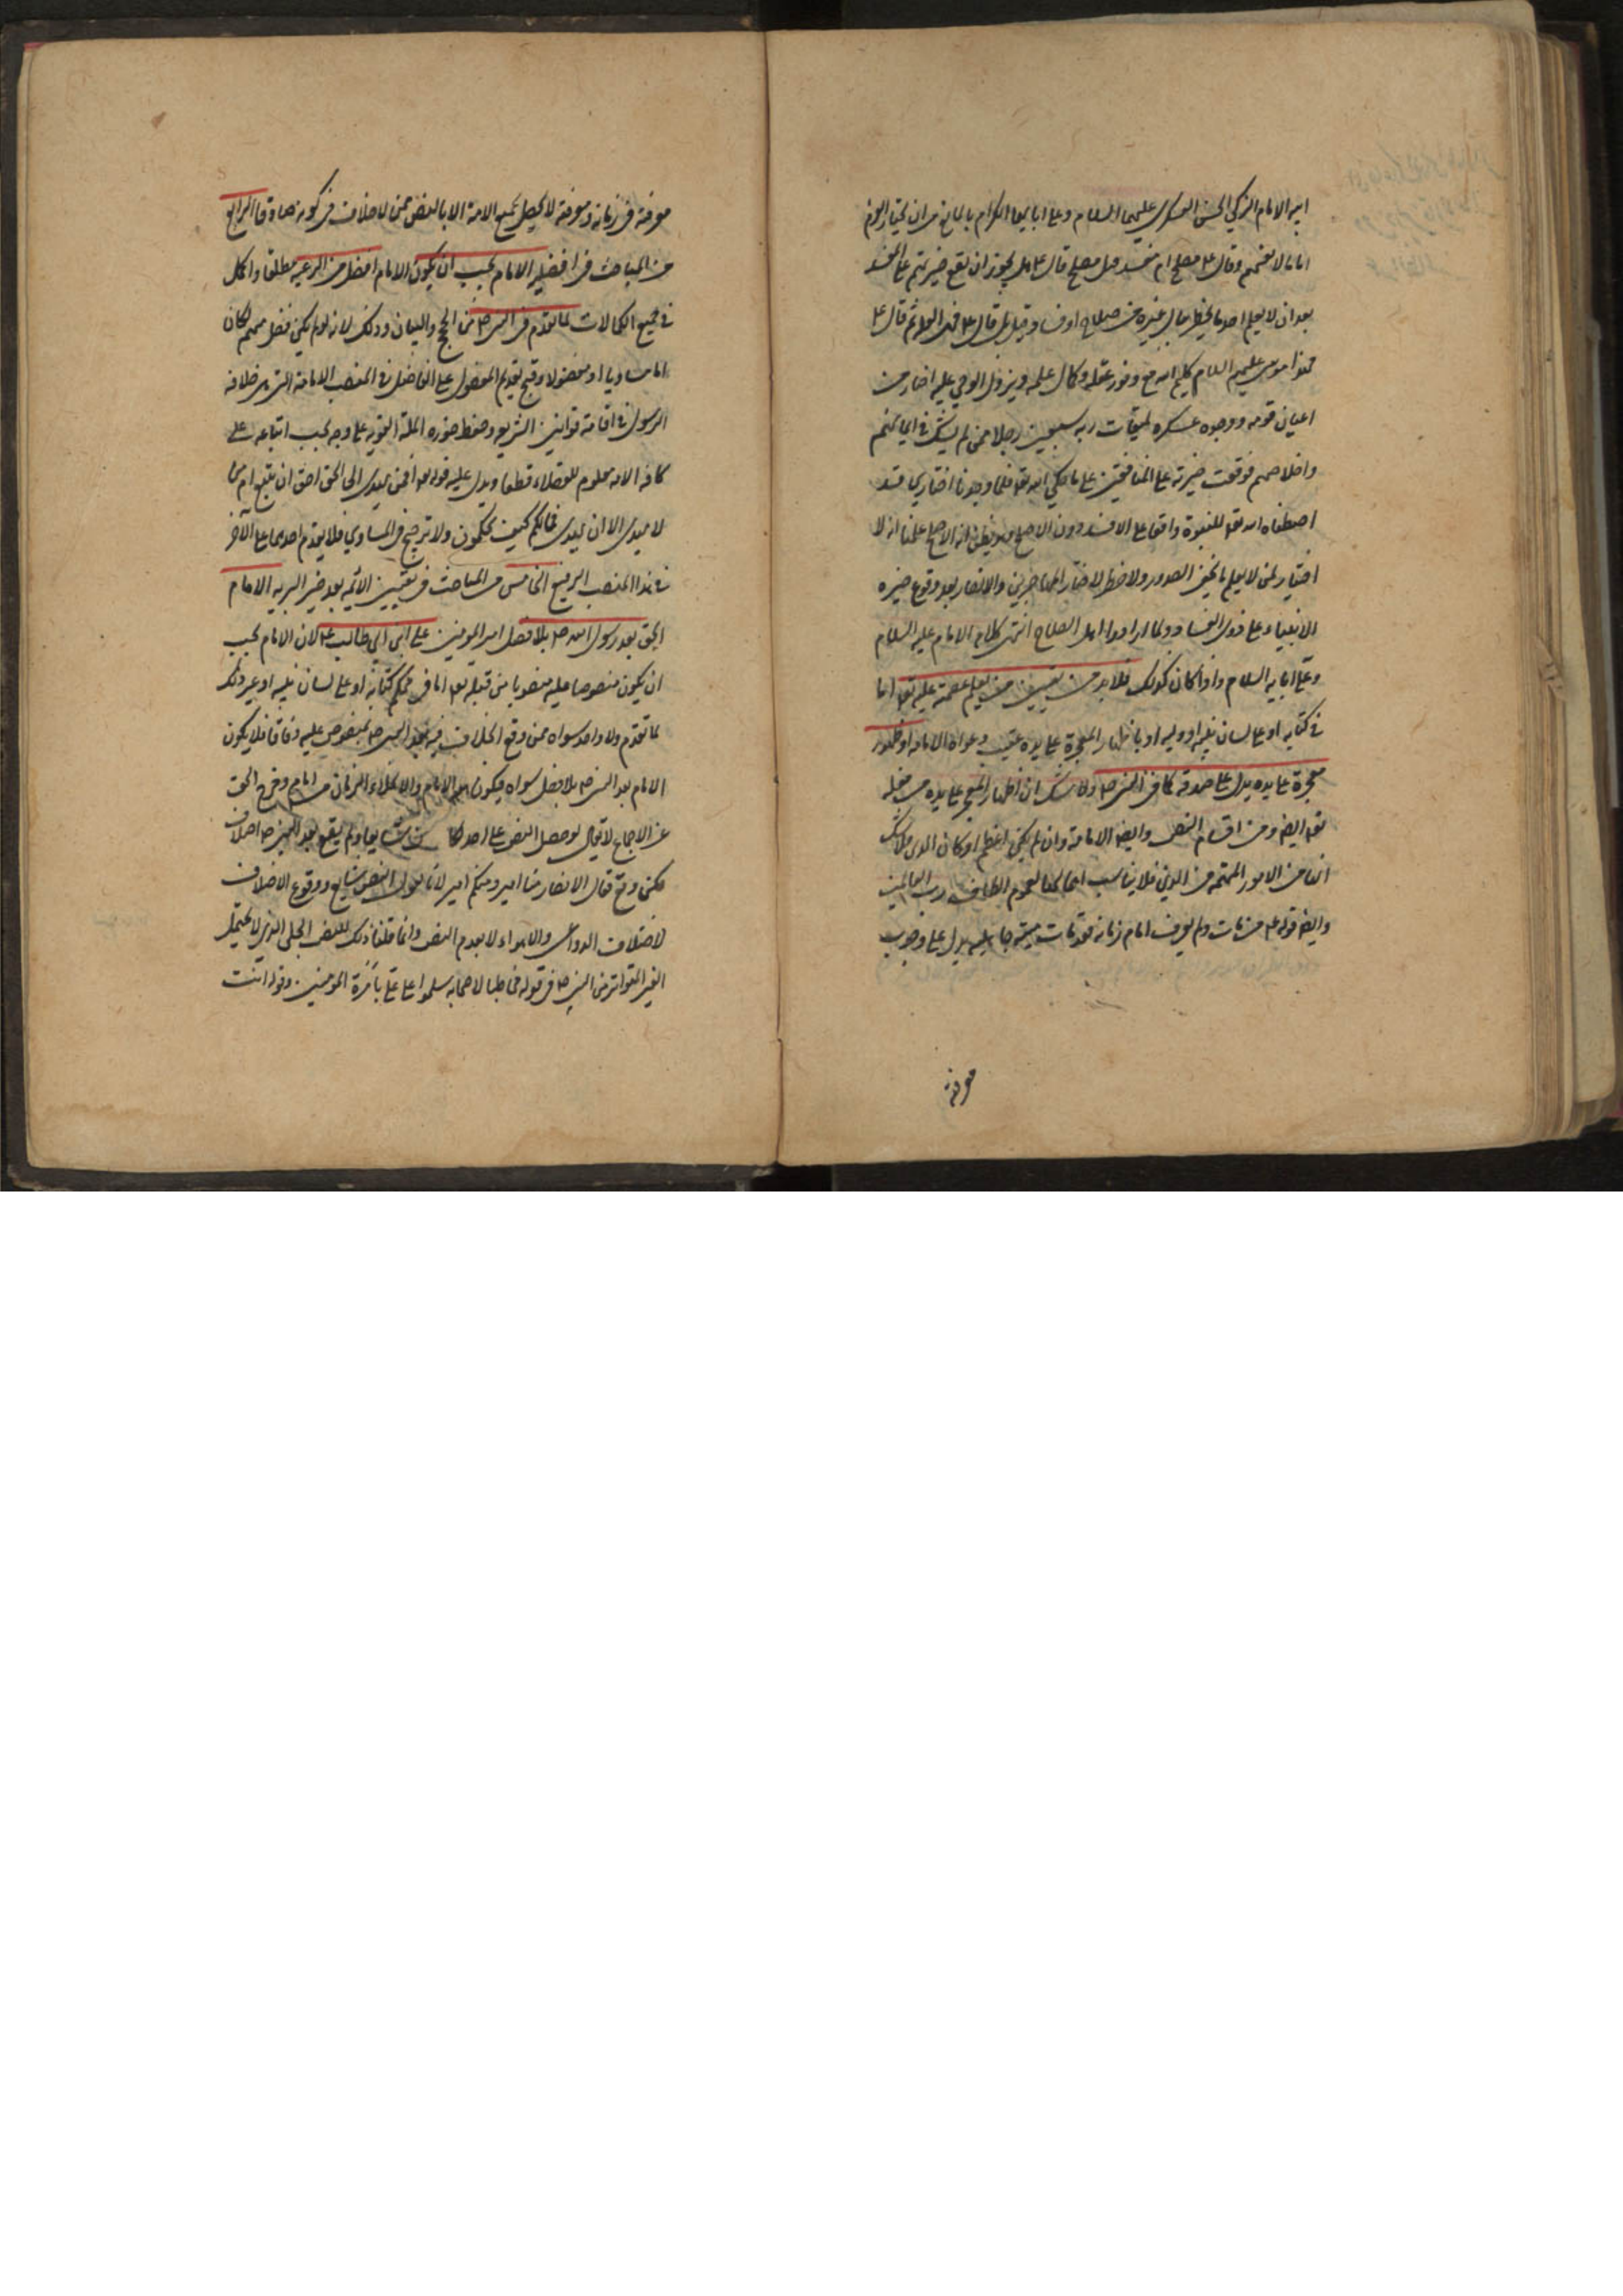 ابيه الامام الزكي الحسن العسكري عليهما السلام وعلى ابايهما الكرام بالمانع من ان يختار القوم
اماما لانفسهم وقال ع مصلح ام مفسد قيل مصلح قال ع هل يجوز ان تقع خيرتهم على المفسد
بعد ان لا يعلم احد ما يخطر ببال غيره من صلاح او فساد قيل بلى قال ع فهي العلة ثم قال ع
هذا موسى عليه السلام كليم الله مع وفور عقله وكمال علمه ونزول الوحي عليه اختار من
اعيان قومه ووجوه عسكره لميقات ربه سبعين رجلا ممن لم يشك في ايمانهم
واخلاصهم فوقعت خيرته على المنافقين على ما حكى الله تع فلما وجدنا اختيار من قد
اصطفاه الله تع للنبوة واقعا على الافسد دون الاصلح وهو يظن انه الاصلح علمنا ان لا
اختيار لمن لا يعلم ما تخفى الصدور ولا خطر لاختيار المهاجرين والانصار بعد وقوع خيرة
الانبياء على ذوي الفساد ولما ارادوا اهل الصلاح انتهى كلام الامام عليه السلام
وعلى ابايه السلام واذا كان كذلك فلا بد من تعيين من يعلم عصمة عليه تع اما
في كتابه او على لسان نبيه او وليه او باظهار المعجزة على يده عقيب دعواه الامامة او ظهور
معجزة على يده يدل على صدقه كما في النبي ص ولا شك ان اظهار المعجز على يده من فعله
تع ايض ومن اقسام النص وايض الامامة وان لم يكن اعظم اركان الدين فلا شك
انها من الامور المهمة من الدين فلا يناسب اهمالها لعموم الطاف رب العالمين
وايض قوله ع من مات ولم يعرف امام زمانه فقد مات ميتة جاهلية يدل على وجوب
معرفة
معرفة في زمانه ومعرفة لا يحصل لجميع الامة الا بالنص ممن لا خلاف في كونه صادقا الرابع
من المباحث في افضلية الامام يجب ان يكون الامام افضل من الرعية مطلقا واكمل
في جميع الكمالات لما تقدم في النبي ص من الحجج والبيان وذلك لانه لو لم يكن افضل منهم لكان
اما مساويا او مفضولا وقبح تقديم المفضول على الفاضل في المنصب الامامة التي هي خلافة
الرسول في اقامة قوانين الشريعة وحفظ حوزة الملة القويمة على وجه يجب اتباعه على
كافة الامة معلوم للعقلاء قطعا ويدل عليه قوله تع افمن يهدي الى الحق احق ان يتبع ام من
لا يهدي الا ان يهدى فما لكم كيف تحكمون ولا ترجيح في المساوي فلا يقدم احدهما على الاخر
في هذا المنصب الرفيع الخامس من المباحث في تعيين الائمة بعد خير البرية الامام
الحق بعد رسول الله ص بلا فصل امير المومنين علي ابن ابي طالب ع لان الامام يجب
ان يكون منصوصا عليه منصوبا من قبله تع اما في محكم كتابه او على لسان نبيه او غير ذلك
لما تقدم ولا واحد سواه ممن وقع الخلاف فيه بعد النبي ص بمنصوص عليه وفاقا فلا يكون
الامام بعد النبي ص بلا فصل سواه فيكون هو الامام والا لخلاء الزمان من امام وخرج الحق
عن الاجماع لا يقال لو حصل النص على احد لكان شايعا ولم يقع بعد النبي ص اختلاف
لكن وقع فقال الانصار منا امير ومنكم امير لانا نقول النص شايع ووقوع الاختلاف
لاختلاف الدواعي والاهواء لا بعدم النص وانما قلنا ذلك للنص الجلي الذي لا يحتمل
الغير المتواتر من النبي ص في قوله مخاطبا لاصحابه سلموا على علي بامرة المومنين وقوله انت